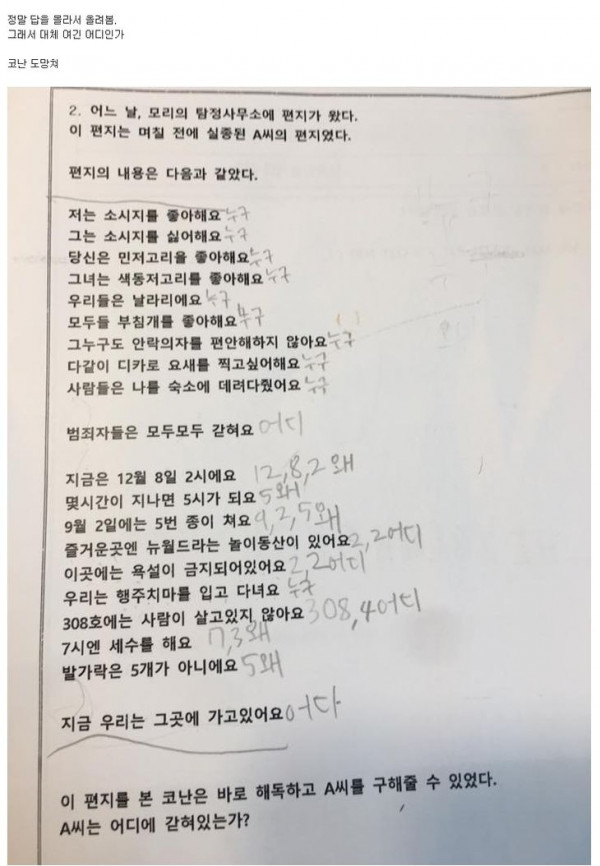 정말 답을 몰라서 올려봄.
그래서 대체 여긴 어디인가
코난 도망쳐
2. 어느 날, 모리의 탐정사무소에 편지가 왔다.
이 편지는 며칠 전에 실종된 A씨의 편지였다.
편지의 내용은 다음과 같았다.
저는 소시지를 좋아해요 누구
그는 소시지를 싫어해요 누구
당신은 민저고리을 좋아해요 누구
그녀는 색동저고리를 좋아해요 누구
우리들은 날라리에요 누구
모두들 부침개를 좋아해요 누구
그누구도 안락의자를 편안해하지 않아요 누구
다같이 디카로 요새를 찍고싶어해요 누구
사람들은 나를 숙소에 데려다줬어요 누구
범죄자들은 모두모두 갇혀요 어디
지금은 12월 8일 2시에요 12,8,2 왜
몇시간이 지나면 5시가 되요 5왜
9월 2일에는 5번 종이 쳐요 9,2,5 왜
즐거운곳엔 뉴월드라는 놀이동산이 있어요 2,2어디
이곳에는 욕설이 금지되어있어요 2,2어디
우리는 행주치마를 입고 다녀요 누구
308호에는 사람이 살고있지 않아요 308,4어디
7시엔 세수를 해요 7,3왜
발가락은 5개가 아니에요 5왜
지금 우리는 그곳에 가고있어요 어디
이 편지를 본 코난은 바로 해독하고 A씨를 구해줄 수 있었다.
A씨는 어디에 갇혀있는가?